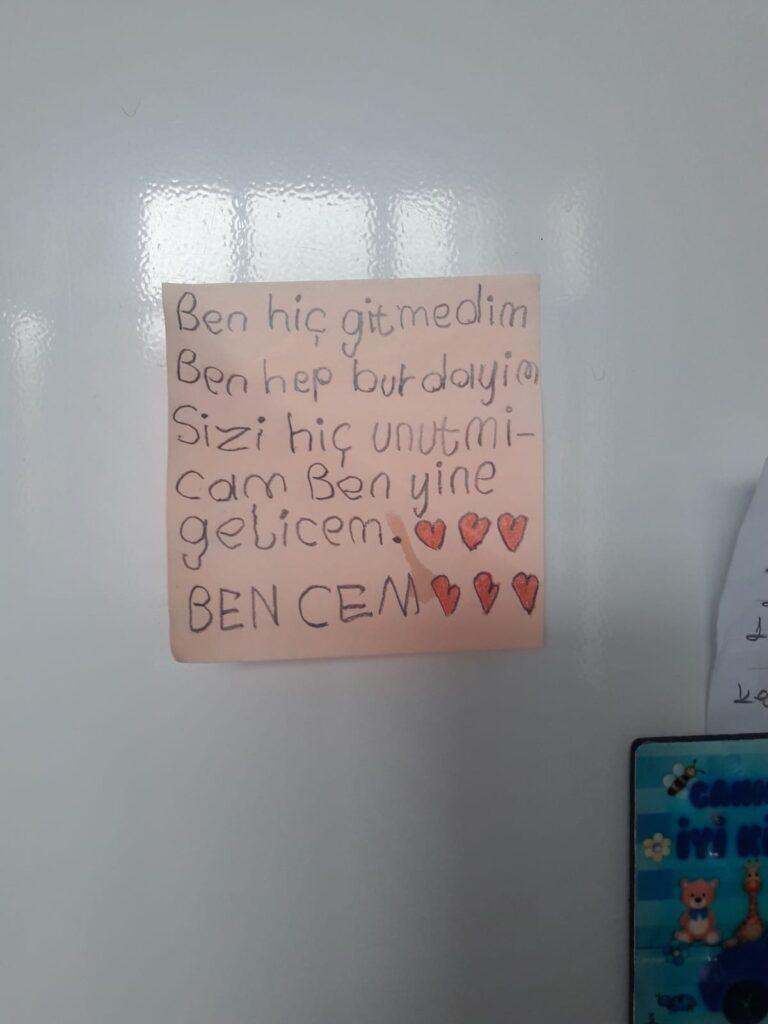 Ben hiç gitmedim
Ben hep burdayim
Sizi hiç unutmi-
cam Ben yine
gelicem. ♥♥♥
BEN CEM ♥♥♥
İYİ Kİ